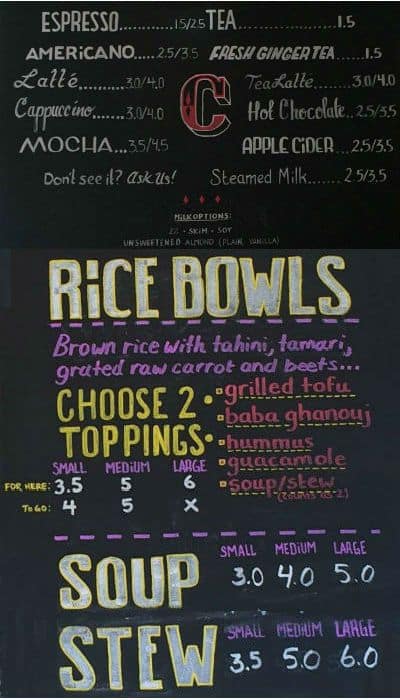 ESPRESSO............1.5/2.5 TEA...............1.5
AMERICANO.....2.5/3.5 FRESH GINGER TEA.....1.5
Latté..........3.0/4.0 Tea Latte.......3.0/4.0
Cappuccino.......3.0/4.0 Hot Chocolate..2.5/3.5
MOCHA...3.5/4.5 APPLE CiDER...2.5/3.5
Don't see it? Ask Us! Steamed Milk.......2.5/3.5
C
MILK OPTIONS:
2% - SKIM - SOY
UNSWEETENED ALMOND (PLAIN, VANILLA)
RiCE BOWLS
Brown rice with tahini, tamari,
grated raw carrot and beets...
CHOOSE 2
TOPPINGS
• grilled tofu
baba ghanouj
• hummus
guacamole
soup/stew
(counts as 2)
SMALL MEDiUM LARGE
FOR HERE: 3.5 5 6
To GO: 4 5 X
SOUP
SMALL MEDiUM LARGE
3.0 4.0 5.0
STEW
SMALL MEDiUM LARGE
3.5 5.0 6.0